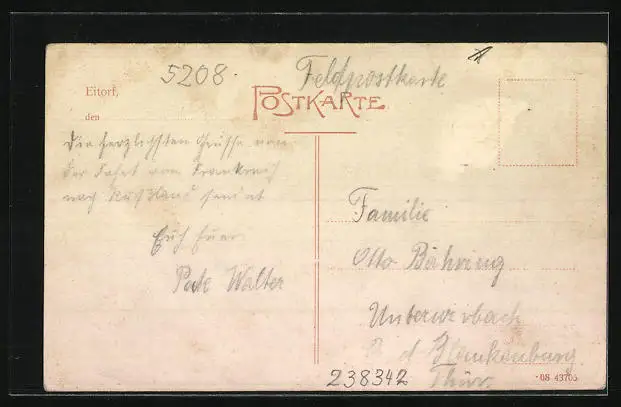 5208
Feldpostkarte
Eitorf,
POSTKARTE.
den
Die herzlichsten Grüsse von
der Fahrt von Frankreich
nach Russland sendet
Euch Euer
Pate Walter
Familie
Otto Böhring
Unterwirbach
b d Blankenburg
Thür.
238342
08 43705